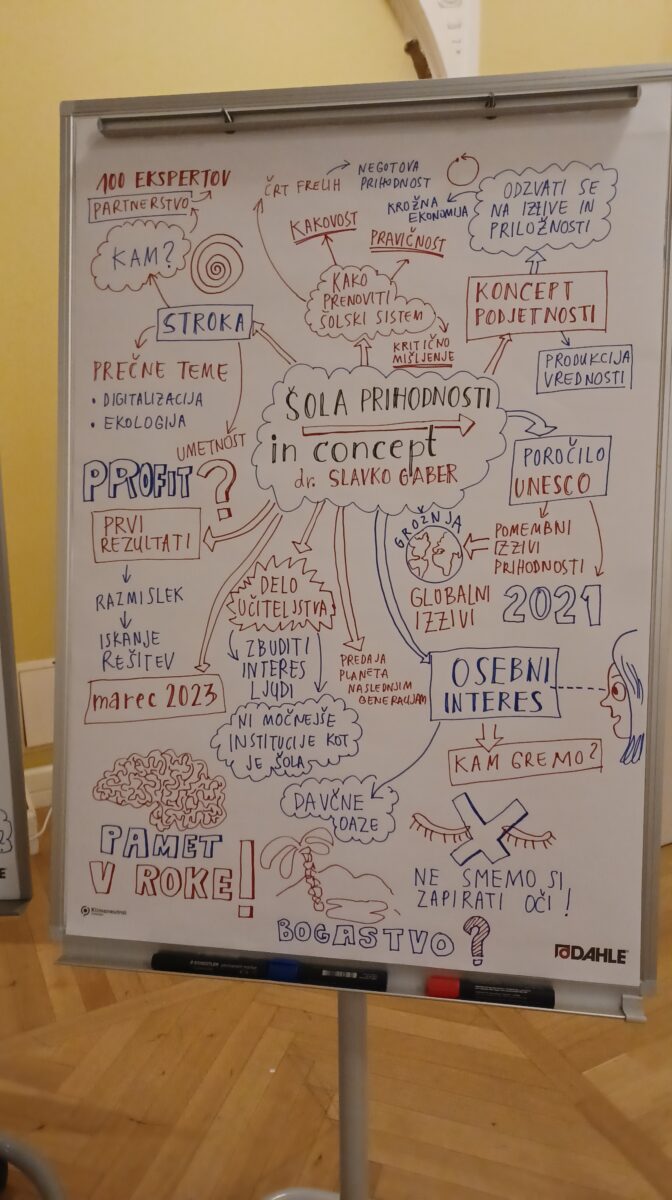 100 EKSPERTOV
PARTNERSTVO
KAM?
STROKA
PREČNE TEME
• DIGITALIZACIJA
• EKOLOGIJA
UMETNOST
ČRT FRELIH
NEGOTOVA
PRIHODNOST
KAKOVOST
PRAVIČNOST
KAKO
PRENOVITI
ŠOLSKI SISTEM
KRITIČNO
MIŠLJENJE
KROŽNA
EKONOMIJA
ODZVATI SE
NA IZZIVE IN
PRILOŽNOSTI
KONCEPT
PODJETNOSTI
PRODUKCIJA
VREDNOSTI
ŠOLA PRIHODNOSTI
in concept
dr. SLAVKO GABER
POROČILO
UNESCO
POMEMBNI
IZZIVI
PRIHODNOSTI
2021
GROŽNJA
GLOBALNI
IZZIVI
PROFIT?
PRVI
REZULTATI
RAZMISLEK
ISKANJE
REŠITEV
marec 2023
DELO
UČITELJSTVA
ZBUDITI
INTERES
LJUDI
NI MOČNEJŠE
INSTITUCIJE KOT
JE ŠOLA
PREDAJA
PLANETA
NASLEDNJIM
GENERACIJAM
OSEBNI
INTERES
KAM GREMO?
DAVČNE
OAZE
PAMET
V ROKE!
BOGASTVO?
NE SMEMO SI
ZAPIRATI OČI!
Klimaneutral
DAHLE
STAEDTLER permanent marker